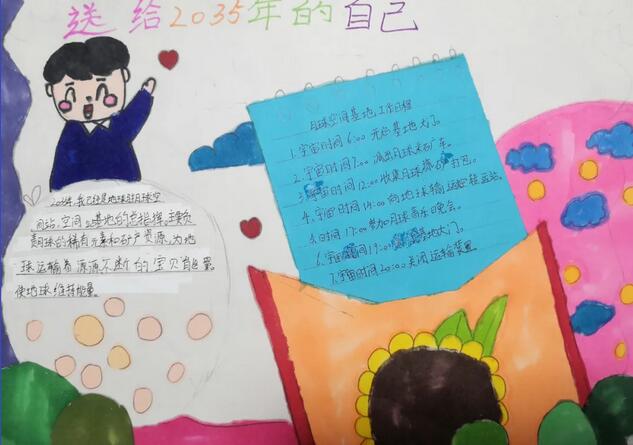 送给2035年的自己
2035年,我已经是地球驻月球空
间站,空间站基地的总指挥,主要负
责月球的稀有元素和矿产资源,为地
球运输着源源不断的宝贝
使地球维持能量。
月球空间基地工作日程
1.宇宙时间6:00 开启基地大门。
2.宇宙时间7:00 派出月球采矿车。
3.宇宙时间12:00 收集月球 矿 。
4.宇宙时间14:00 向地球输 运 。
5.时间17:00 参加月球音乐晚会。
6.宇宙时间19:00 基地大门。
7.宇宙时间20:00 关闭运输装置。